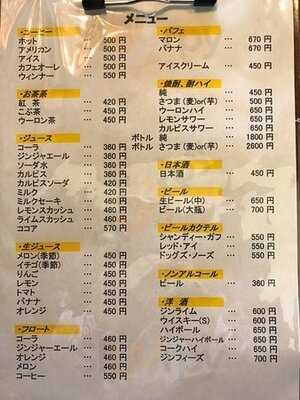 メニュー
・コーヒー
ホット … 500 円
アメリカン … 500 円
アイス … 500 円
カフェオーレ … 500 円
ウィンナー … 550 円
・お茶系
紅 茶 … 420 円
こぶ茶 … 450 円
ウーロン茶 … 450 円
・ジュース
コーラ … 360 円
ジンジャエール … 360 円
ソーダ水 … 360 円
カルピス … 360 円
カルピスソーダ … 420 円
ミルク … 420 円
ミルクセーキ … 460 円
レモンスカッシュ … 460 円
ライムスカッシュ … 460 円
ココア … 570 円
・生ジュース
メロン(季節) … 450 円
イチゴ(季節) … 450 円
りんご … 450 円
レモン … 450 円
トマト … 450 円
バナナ … 450 円
オレンジ … 450 円
・フロート
コーラ … 460 円
ジンジャーエール … 460 円
オレンジ … 460 円
メロン … 460 円
コーヒー … 550 円
・パフェ
マロン … 670 円
バナナ … 670 円
アイスクリーム … 450 円
・焼酎、酎ハイ
純 … 450 円
さつま(麦)or(芋) … 500 円
ウーロンハイ … 650 円
レモンサワー … 650 円
カルピスサワー … 650 円
ボトル 純 1800 円
ボトル さつま(麦)or(芋) … 2600 円
・日本酒
日本酒 … 450 円
・ビール
生ビール(中) … 650 円
ビール(大瓶) … 700 円
・ビールカクテル
シャンディー・ガフ … 550 円
レッド・アイ … 550 円
ドッグズ・ノーズ … 550 円
・ノンアルコール
ビール … 360 円
・洋 酒
ジンライム … 600 円
ウイスキー(S) … 600 円
ハイボール … 650 円
ジンジャーハイボール … 650 円
コークハイ … 650 円
ジンフィーズ … 700 円